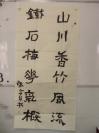 山川香竹風流
鐵石梅花氣概